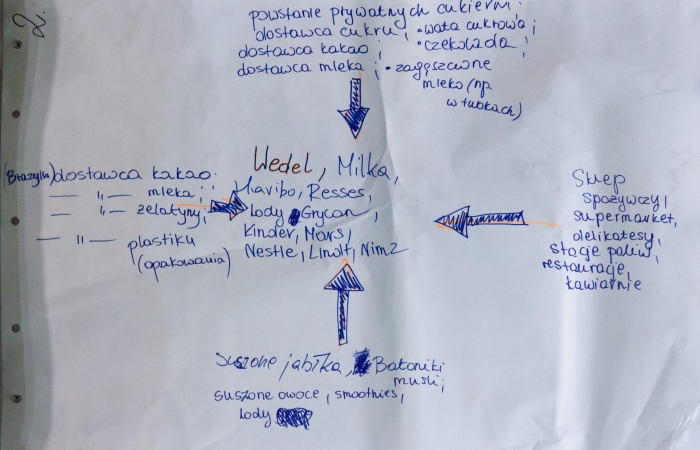 2.
powstanie prywatnych cukierni:
dostawca cukru, • wata cukrowa;
dostawca kakao; • czekolada;
dostawca mleka; • zagęszczone
mleko (np.
w tubkach)
(Brazylia) dostawca kakao.
— " — mleka;
— " — żelatyny;
— " — plastiku
(opakowania)
Wedel, Milka,
Haribo, Resses,
Lody Grycan,
Kinder, Mars,
Nestle, Lindt, Nim2
Sklep
Spożywczy,
supermarket,
delikatesy,
stacje paliw,
restauracje,
kawiarnie
suszone jabłka, Batoniki
musli;
suszone owoce, smoothies,
lody